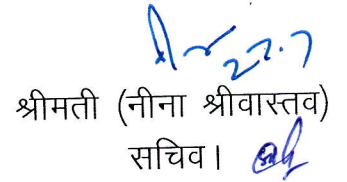 22.7
श्रीमती (नीना श्रीवास्तव)
सचिव।